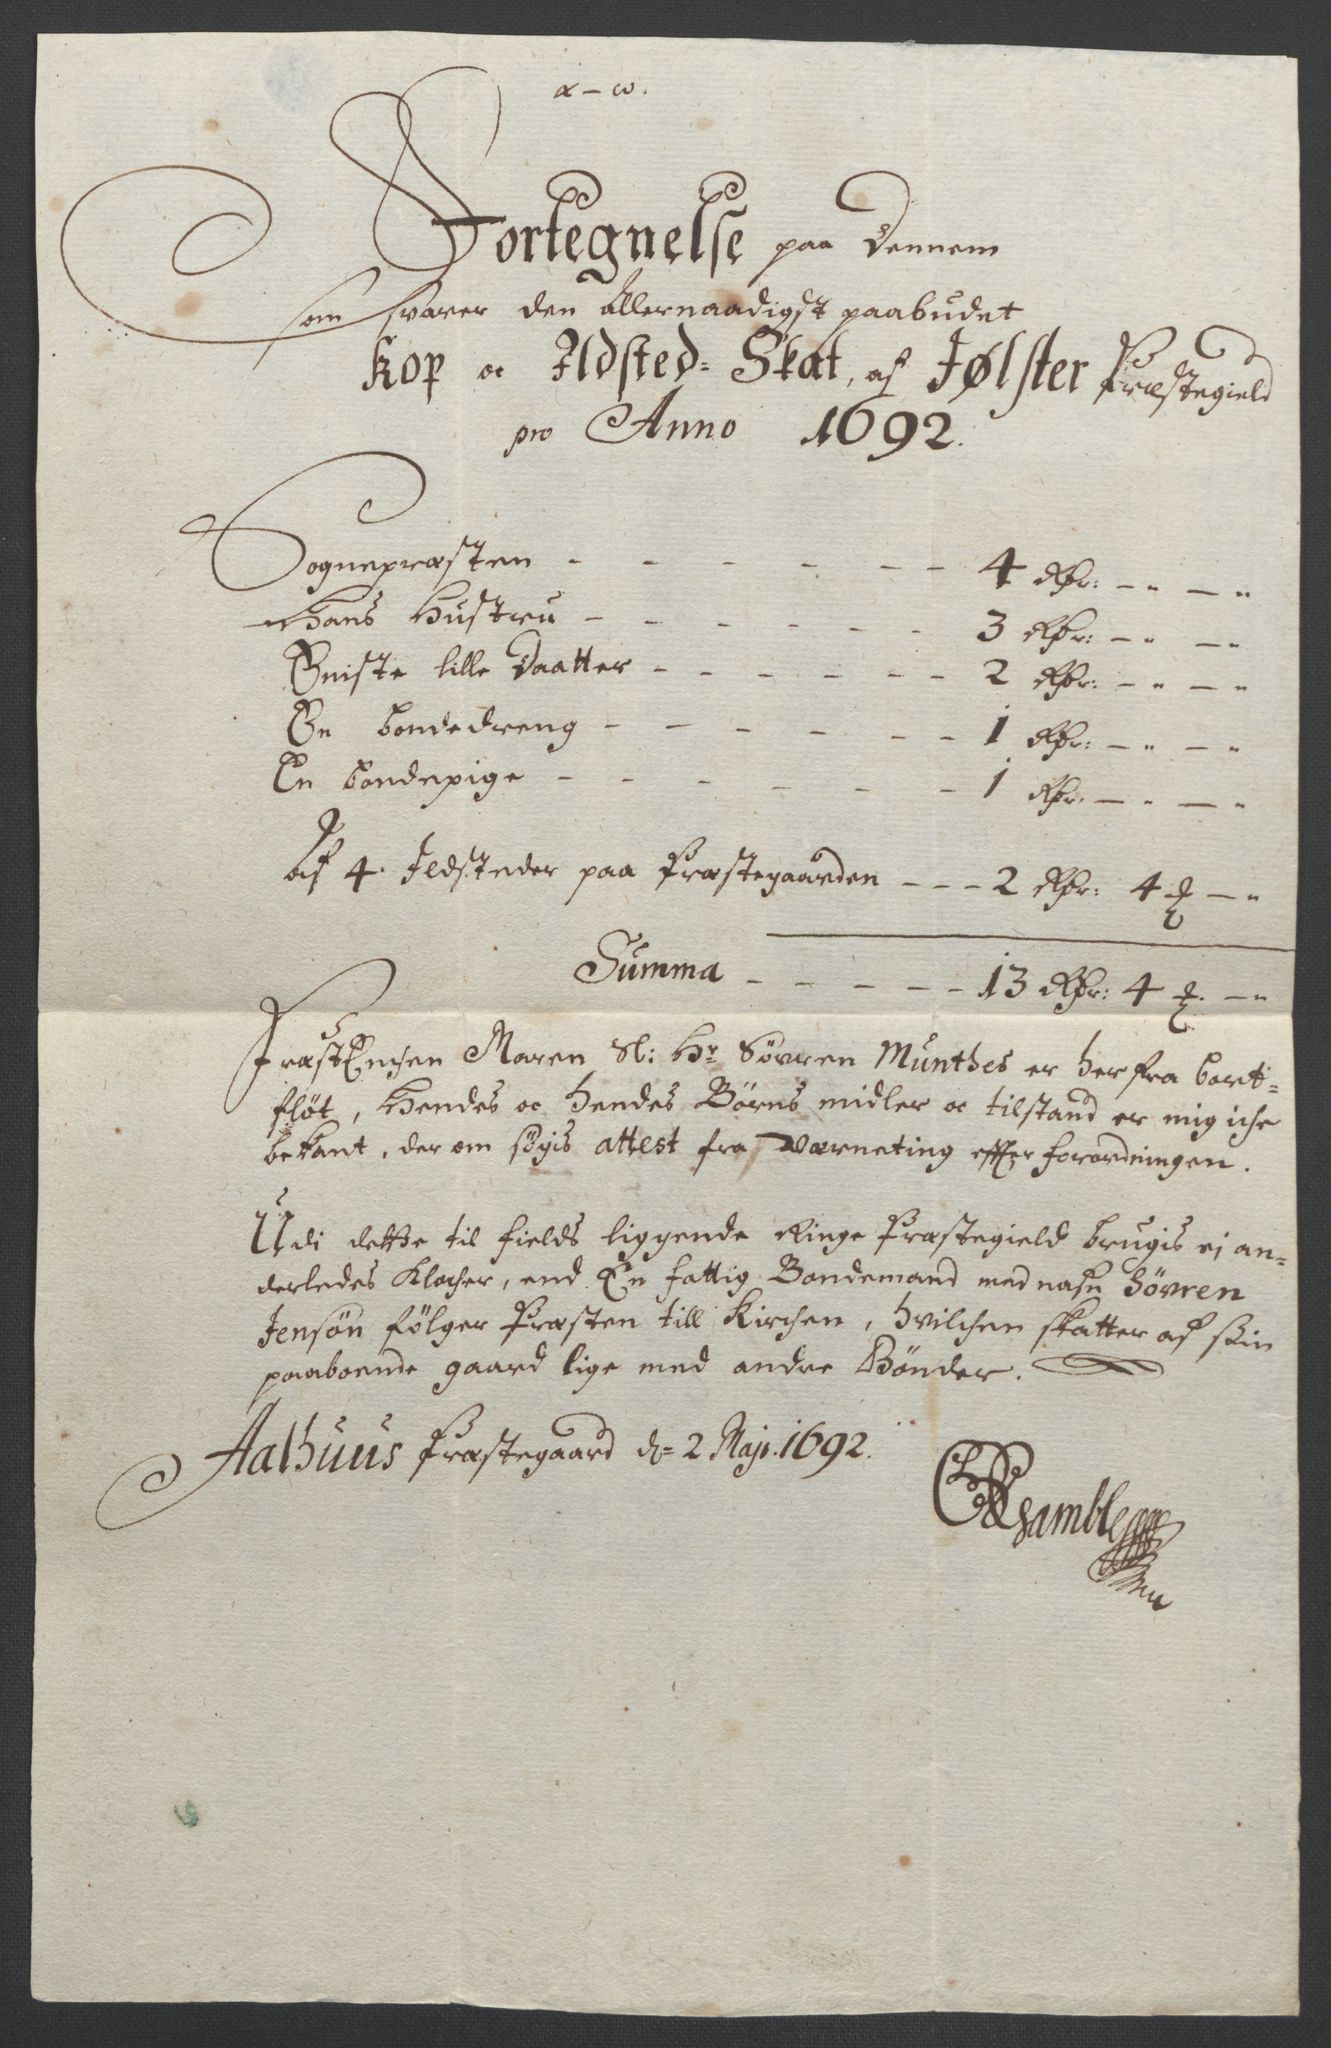 α – ω.
Fortegnelse paa dennem
som svarer den allernaadigst paabudet
Kop oc Ildsted= Skat, af Jølster Præstegield
pro Anno 1692.
Sognepræsten - - - - - - 4 Rdr: – " – "
Hans Hustru - - - - - - 3 Rdr: – " – "
Eniste lille Daatter - - - - - - 2 Rdr: – " – "
En bondedreng - - - - - - 1 Rdr: – " – "
En bondepige - - - - - - 1 Rdr: – " – "
Af 4. Ildsteder paa Præstegaarden - - - 2 Rdr: 4 ꝟ – "
Summa - - - - - 13 Rdr: 4 ꝟ. – "
PræstEnchen Maren Sl: Hr Søvren Munthes er her fra bort=
fløt, Hendes oc hendes Børns midler oc tilstand er mig iche
bekant, der om søgis attest fra Værneting effter forordningen.
Udi dette til fields liggende Ringe Præstegield brugis ej an=
derledes Klocher, end En fattig Bondemand med nafn Søvren
Jensøn følger Præsten till Kirchen, hvilchen skatter af sin
paaboende gaard lige med andre Bønder.
Aalhuus Præstegaard d= 2 Maji. 1692.